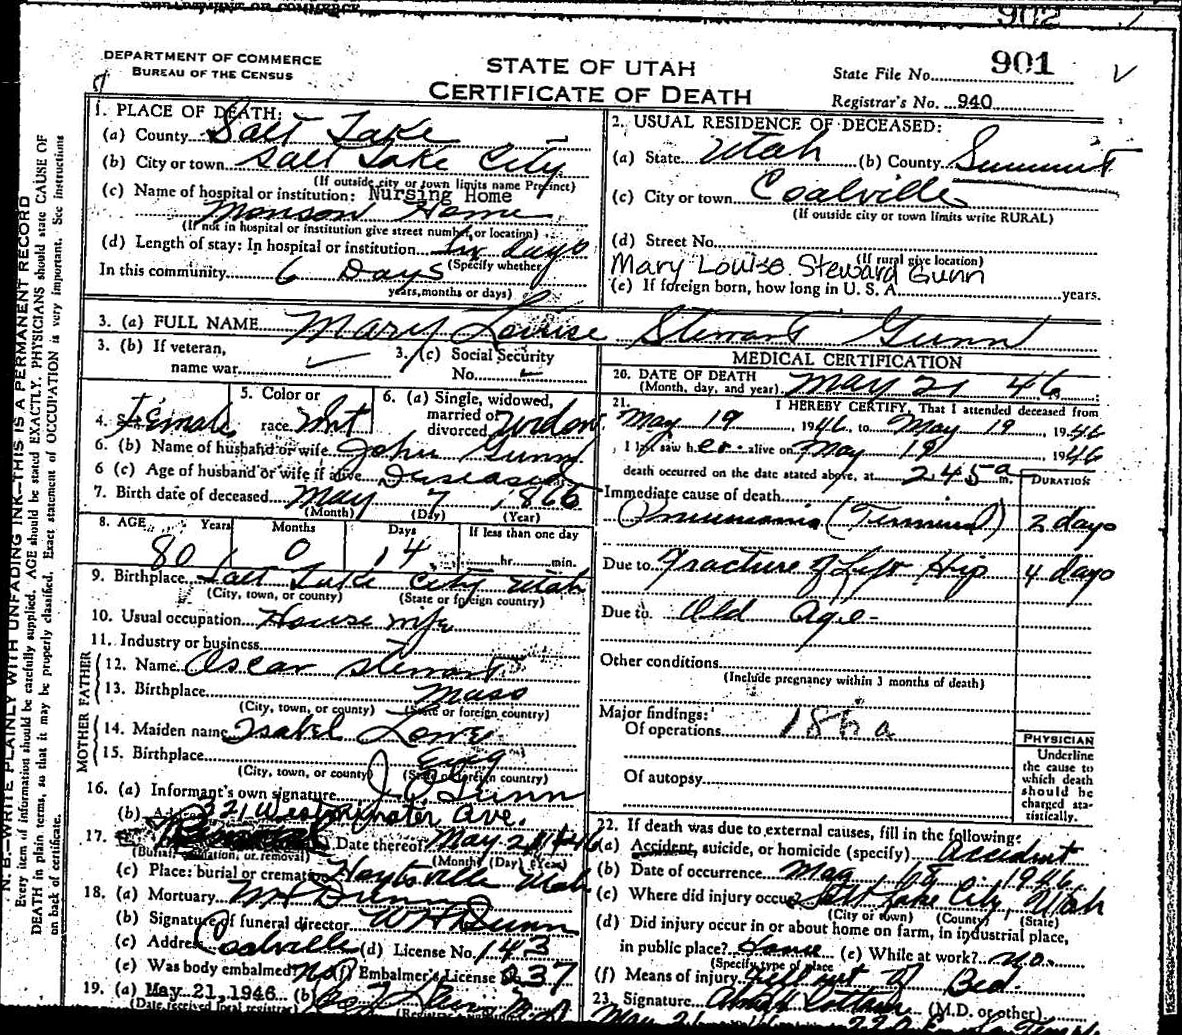 DEPARTMENT OF COMMERCE
902
DEPARTMENT OF COMMERCE
BUREAU OF THE CENSUS
STATE OF UTAH
CERTIFICATE OF DEATH
State File No. 901
Registrar's No. 940
N. B.—WRITE PLAINLY WITH UNFADING INK—THIS IS A PERMANENT RECORD
Every item of information should be carefully supplied. AGE should be stated EXACTLY. PHYSICIANS should state CAUSE OF
DEATH in plain terms, so that it may be properly classified. Exact statement of OCCUPATION is very important. See instructions
on back of certificate.
1. PLACE OF DEATH:
(a) County Salt Lake
(b) City or town Salt Lake City
(If outside city or town limits name Precinct)
(c) Name of hospital or institution: Nursing Home
Monson Home
(If not in hospital or institution give street number or location)
(d) Length of stay: In hospital or institution six days
(Specify whether
In this community 6 Days
years, months or days)
2. USUAL RESIDENCE OF DECEASED:
(a) State Utah (b) County Summit
(c) City or town Coalville
(If outside city or town limits write RURAL)
(d) Street No.
(If rural give location)
Mary Louise Steward Gunn
(e) If foreign born, how long in U. S. A. years.
3. (a) FULL NAME Mary Louise Stewart Gunn
3. (b) If veteran,
name war
3. (c) Social Security
No.
4. Sex Female
5. Color or
race Wht
6. (a) Single, widowed,
married or
divorced Widow
6. (b) Name of husband or wife John Gunn
6 (c) Age of husband or wife if alive Deseased
7. Birth date of deceased May 7 1866
(Month) (Day) (Year)
8. AGE Years Months Days If less than one day
80 0 14 hr. min.
9. Birthplace Salt Lake City Utah
(City, town, or county) (State or foreign country)
10. Usual occupation House wife
11. Industry or business
FATHER
12. Name Oscar Stewart
13. Birthplace Mass
(City, town, or county) (State or foreign country)
MOTHER
14. Maiden name Isabel Lowe
15. Birthplace Eng
(City, town, or county) (State or foreign country)
16. (a) Informant's own signature J Gunn
(b) Address 321 Westminster Ave.
17. Removal Date thereof May 21 1946
(Burial, cremation, or removal) (Month) (Day) (Year)
(c) Place: burial or cremation Hoytsville Utah
18. (a) Mortuary WH Dunn
(b) Signature of funeral director WH Dunn
(c) Address Coalville (d) License No. 143
(e) Was body embalmed (f) Embalmer's License 237
19. (a) May 21, 1946 (b)
(Date received local registrar)
MEDICAL CERTIFICATION
20. DATE OF DEATH
(Month, day, and year) May 21 46
21. I HEREBY CERTIFY, That I attended deceased from
May 19, 1946, to May 19, 1946
I last saw her alive on May 19, 1946
death occurred on the date stated above, at 2:45 a m.
DURATION
Immediate cause of death
Pneumonia (Terminal) 2 days
Due to Fracture of Left Hip 4 days
Due to Old Age-
Other conditions
(Include pregnancy within 3 months of death)
Major findings:
Of operations 186a
Of autopsy
PHYSICIAN
Underline
the cause to
which death
should be
charged sta-
tistically.
22. If death was due to external causes, fill in the following:
(a) Accident, suicide, or homicide (specify) Accident
(b) Date of occurrence May 1946
(c) Where did injury occur? Salt Lake City, Utah
(City or town) (County) (State)
(d) Did injury occur in or about home on farm, in industrial place,
in public place? Home (e) While at work? no.
(Specify type of place
(f) Means of injury Fell out of Bed.
23. Signature (M.D. or other)